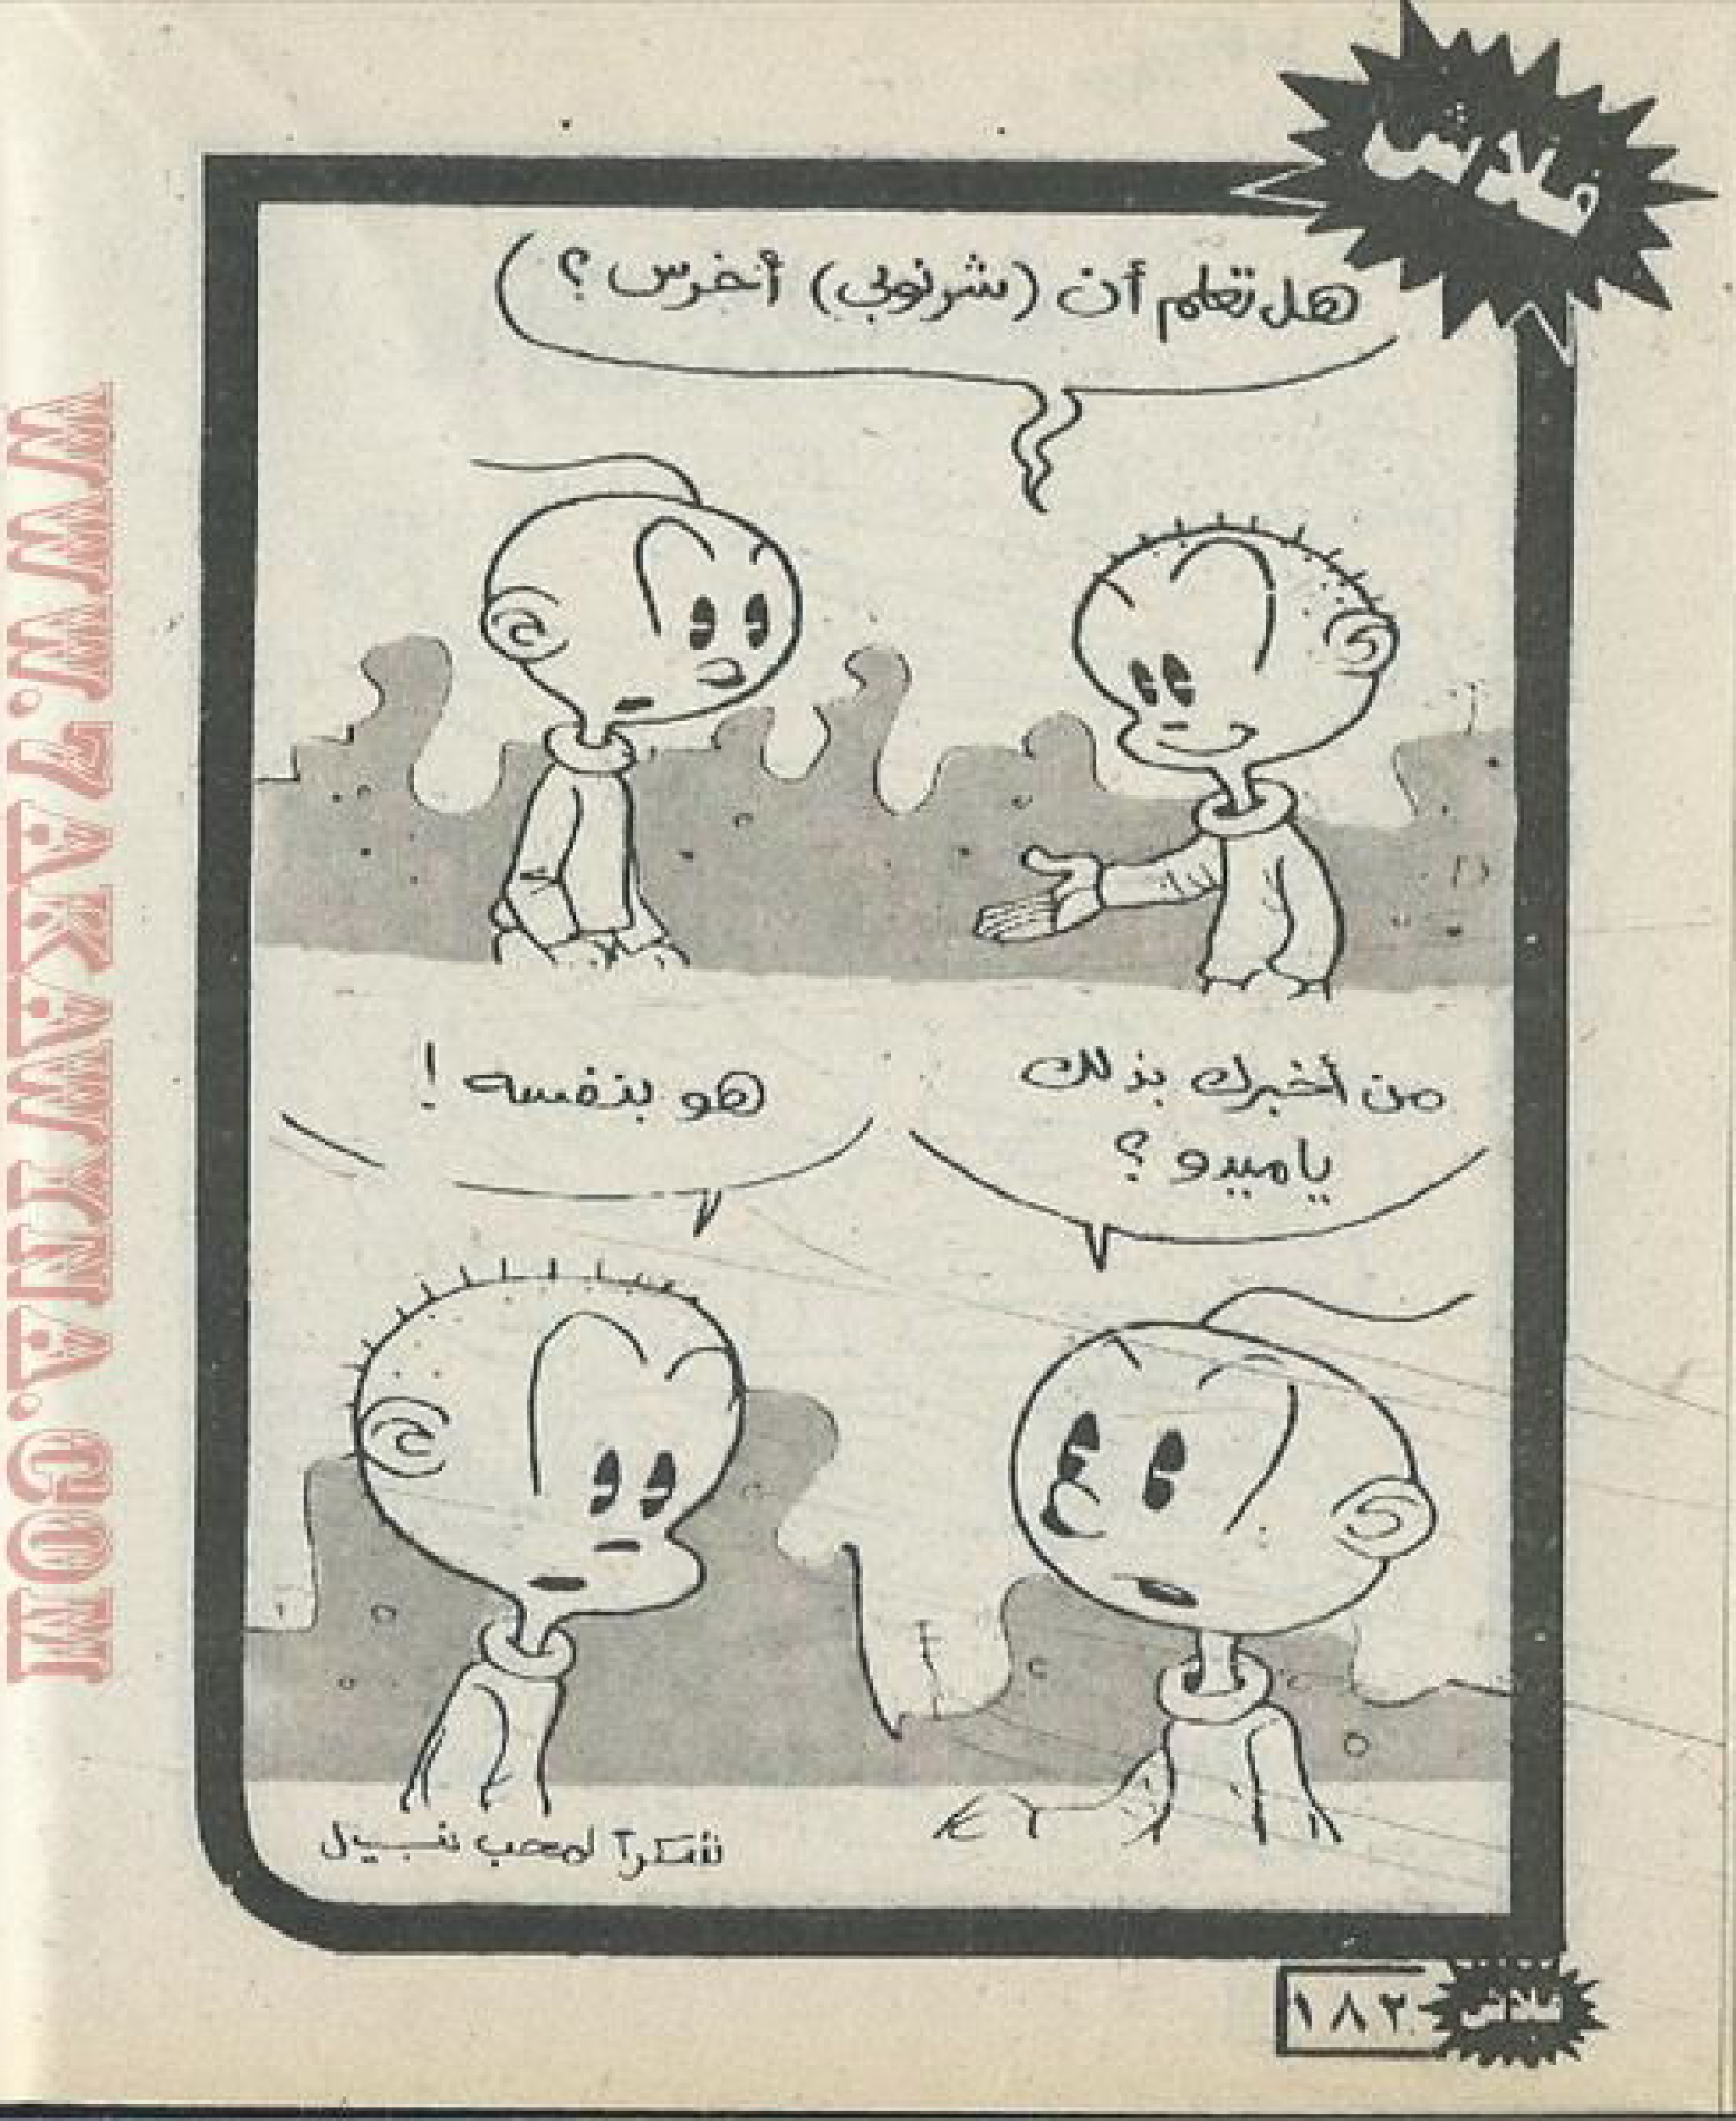 فلاش
هل تعلم أن (شرنوبي) أخرس؟
من أخبرك بذلك
ياميدو؟
هو بنفسه!
شكراً لمحب نبيل
فلاش
١٨٢
WWW.7AKAWINA.COM